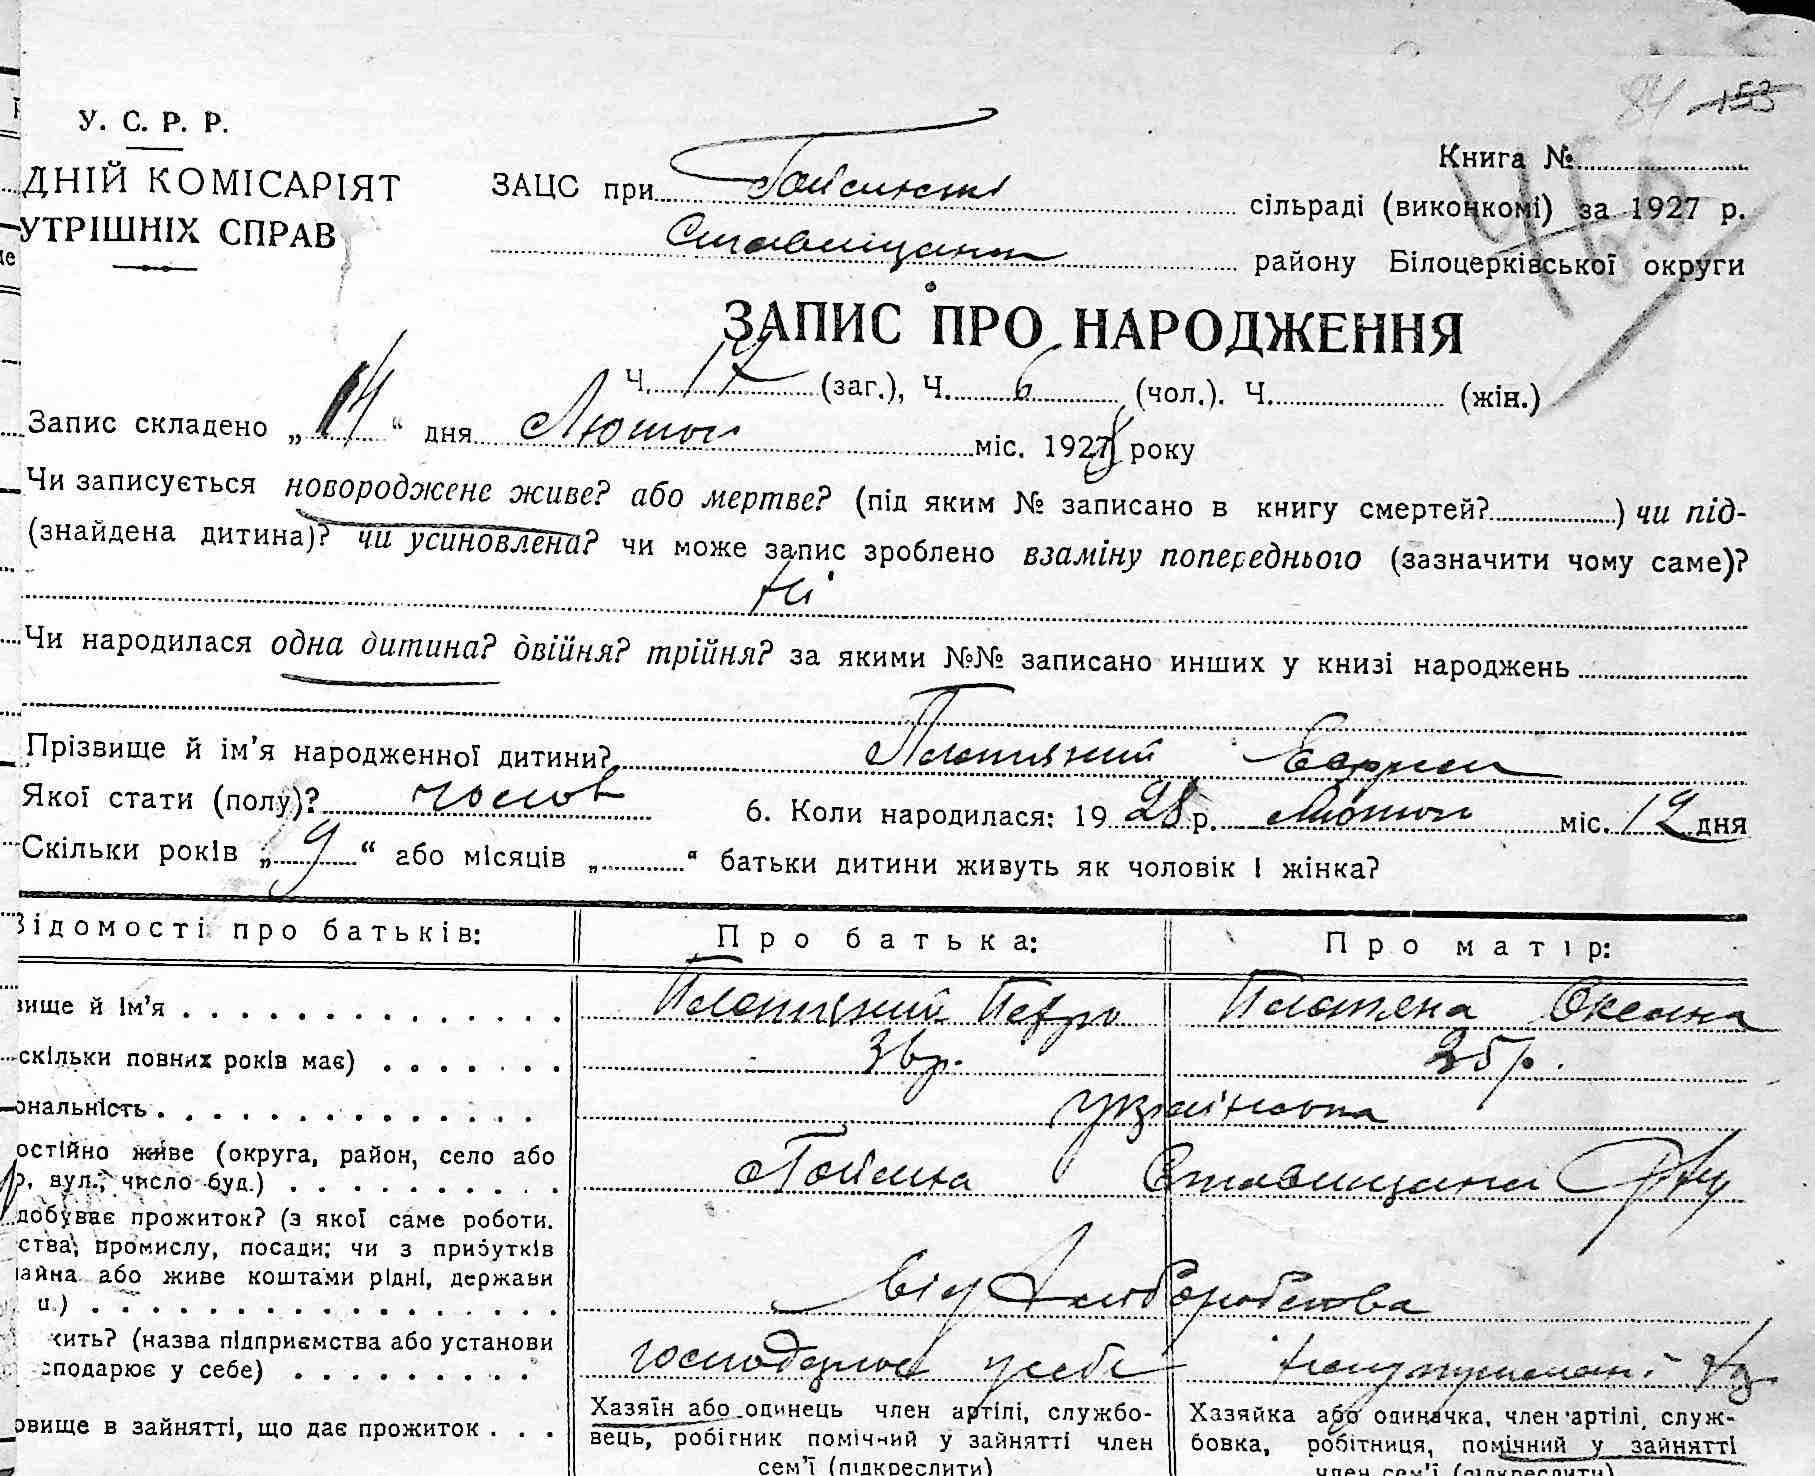 84 153
У. С. Р. Р.
ДНІЙ КОМІСАРІЯТ
УТРІШНІХ СПРАВ
Книга №
ЗАЦС при Гойсинскі сільраді (виконкомі) за 1927 р.
Ставищанск району Білоцерківської округи
ЗАПИС ПРО НАРОДЖЕННЯ
Ч. 17 (заг.), Ч. 6 (чол.). Ч. (жін.)
Запис складено „14“ дня Лютого міс. 1928 року
Чи записується новороджене живе? або мертве? (під яким № записано в книгу смертей? ) чи під-
(знайдена дитина)? чи усиновлена? чи може запис зроблено взаміну попереднього (зазначити чому саме)?
Ні
Чи народилася одна дитина? двійня? трійня? за якими №№ записано инших у книзі народжень
Прізвище й ім'я народженної дитини? Платяний
Якої стати (полу)? чолов 6. Коли народилася: 1928 р. Лютого міс. 12 дня
Скільки років „9“ або місяців „ “ батьки дитини живуть як чоловік і жінка?
Відомості про батьків: Про батька: Про матір:
вище й ім'я Платяний Петро Платяна Оксана
скільки повних років має) 36р. 25р.
ональність українська
остійно живе (округа, район, село або
р, вул., число буд.) Гойсина Ставищана Р-ну
добуває прожиток? (з якої саме роботи.
ства, промислу, посади; чи з прибутків
майна або живе коштами рідні, держави
и.) від хліборобства
жить? (назва підприємства або установи
сподарює у себе) господарює у себе на утриманні
овище в зайнятті, що дає прожиток
Хазяїн або одинець член артілі, службо-
вець, робігник помічний у зайнятті член
сем'ї (підкреслити)
Хазяйка або одиначка, член артілі, служ-
бовка, робітниця, помічний у зайнятті
член сем'ї (підкреслити)